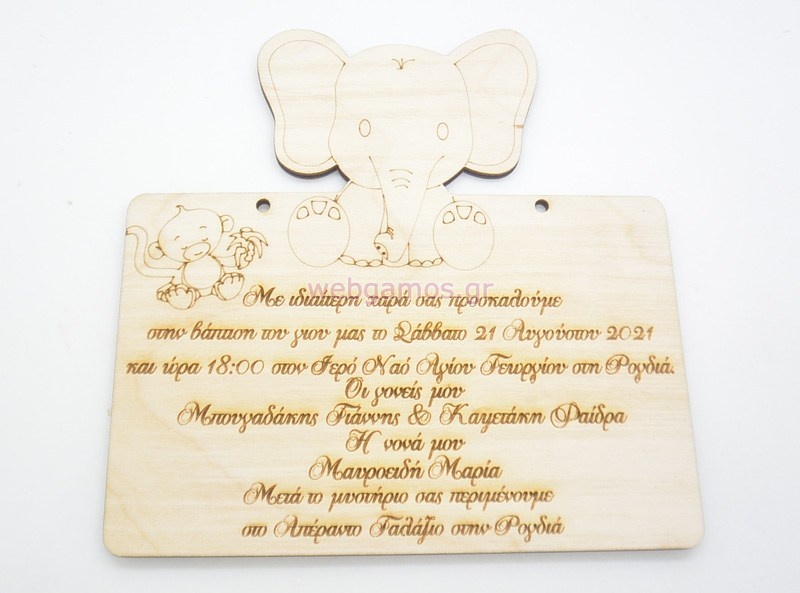 webgamos.gr
Με ιδιαίτερη χαρά σας προσκαλούμε
στην βάπτιση του γιου μας το Σάββατο 21 Αυγούστου 2021
και ώρα 18:00 στον Ιερό Ναό Αγίου Γεωργίου στη Ρογδιά.
Οι γονείς μου
Μπουγαδάκης Γιάννης & Καψετάκη Φαίδρα
Η νονά μου
Μαυροειδή Μαρία
Μετά το μυστήριο σας περιμένουμε
στο Απέραντο Γαλάζιο στην Ρογδιά